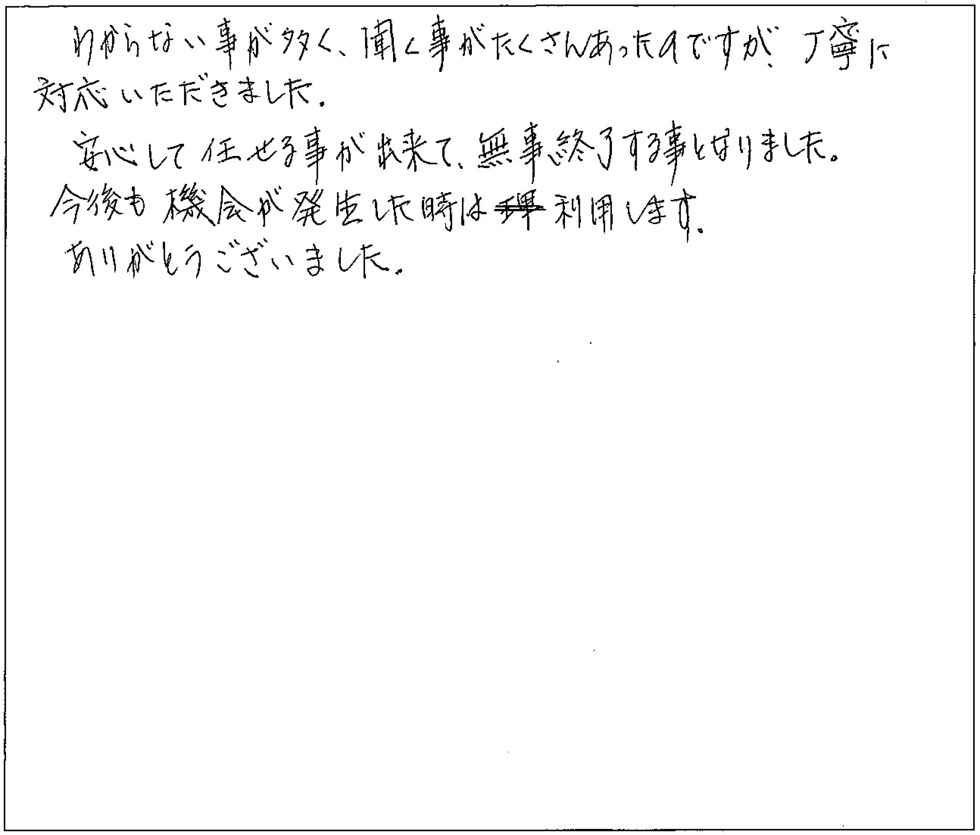 わからない事が多く、聞く事がたくさんあったのですが、丁寧に
対応いただきました。
安心して任せる事が出来て、無事、終了する事となりました。
今後も機会が発生した時は利用します。
ありがとうございました。